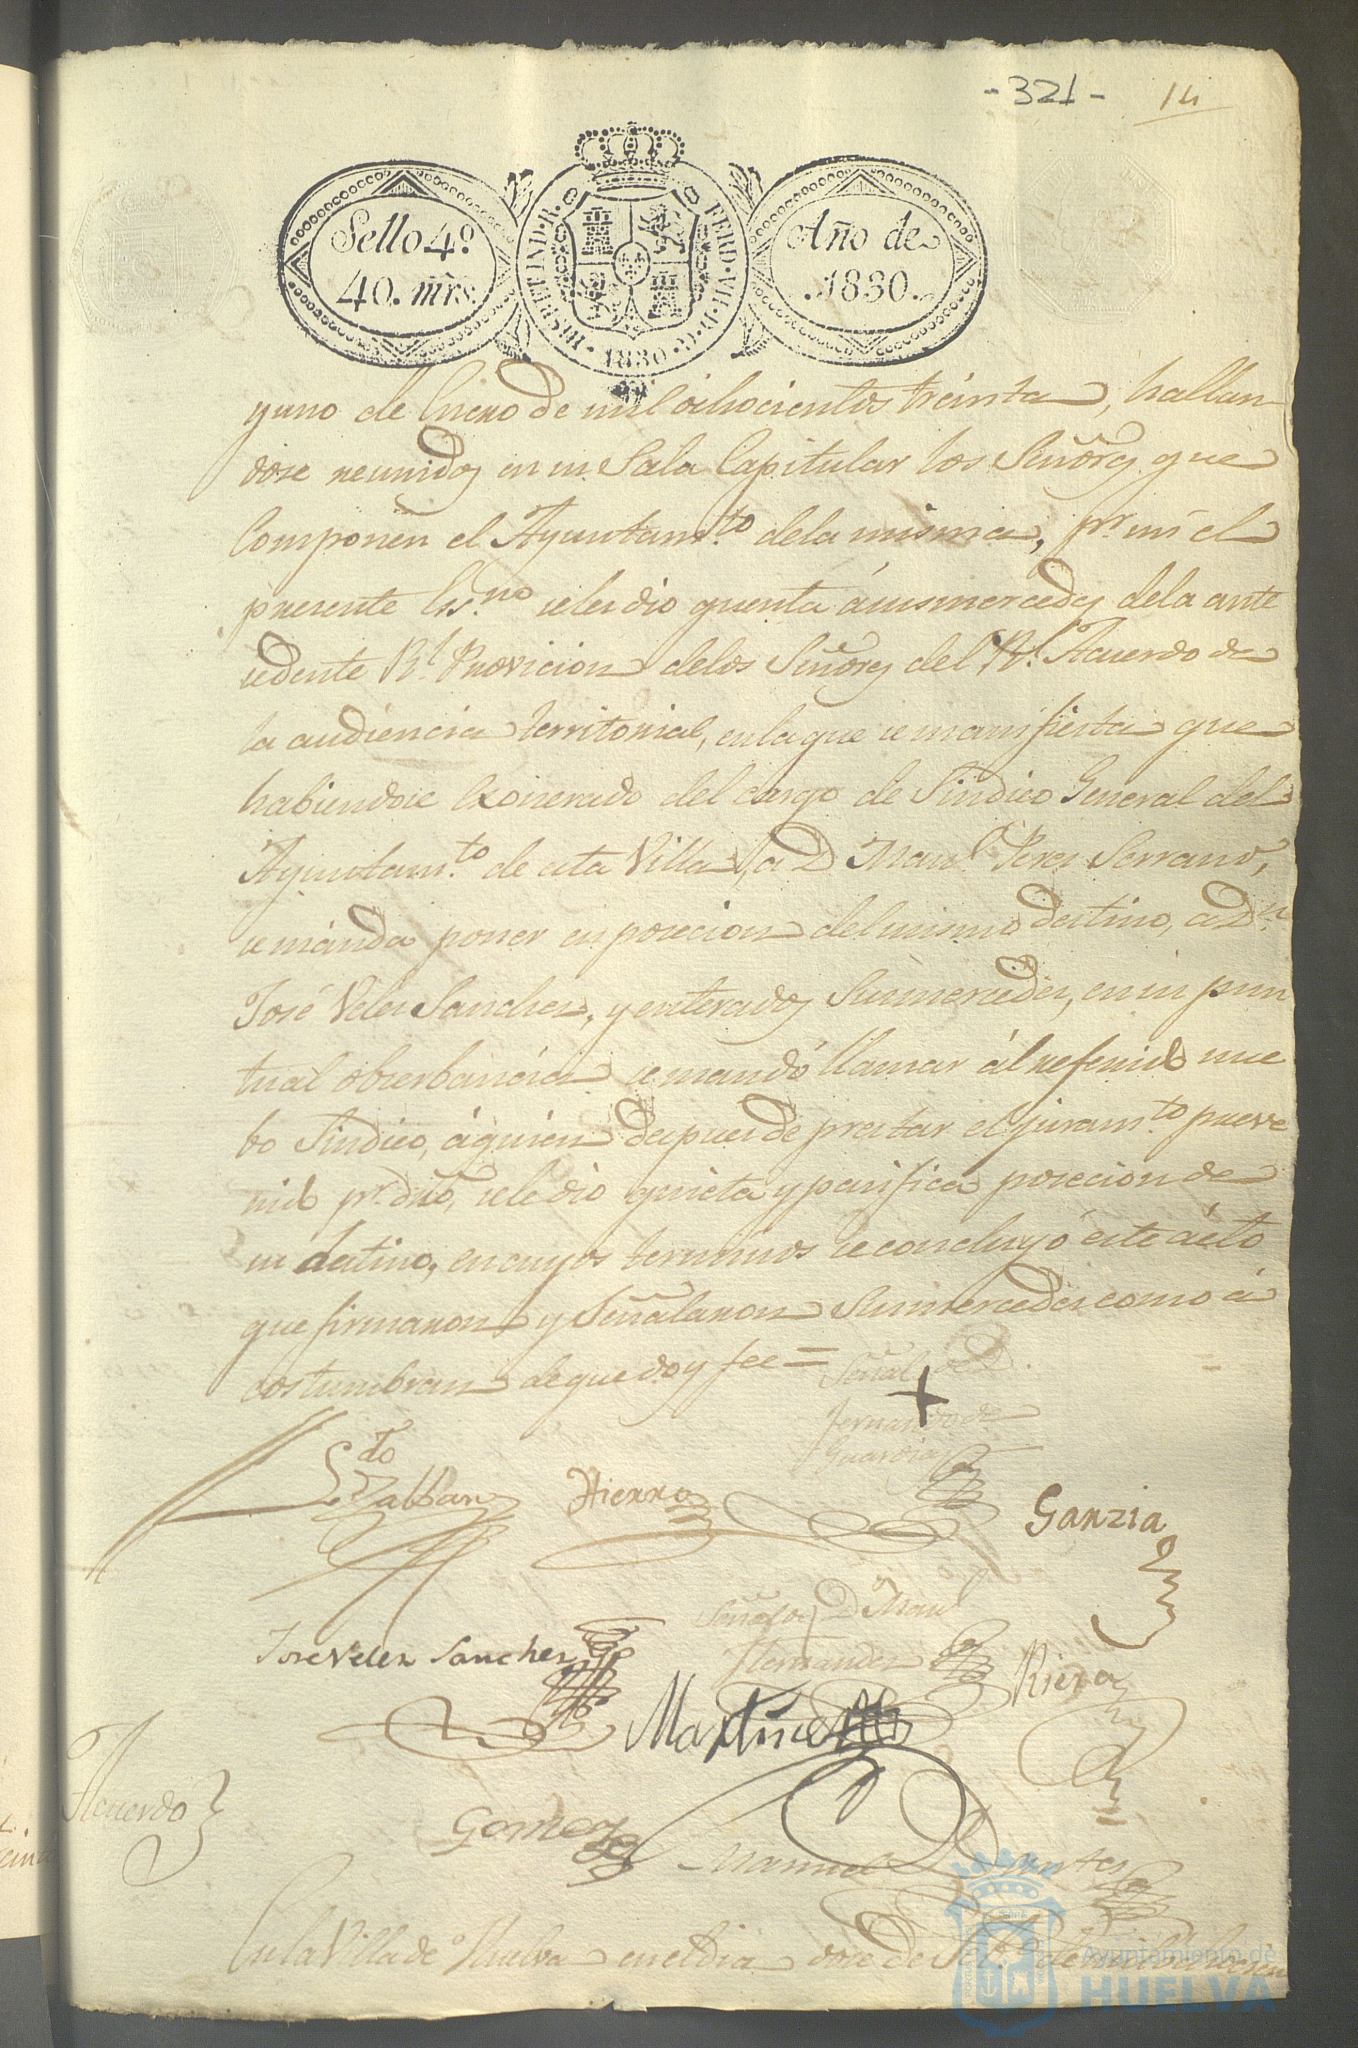 -321-
14
Sello 4º
40. mrs.
HISP. ET IND. R.
FERD. VII. D. G.
1830
Año de
1830.
y uno de Enero de mil ochocientos treinta, hallan
dose reunidos en su Sala Capitular los Señores que
Componen el Ayuntam.to de la misma, pr. mi el
presente Es.no se les dio quenta á sus mercedes de la ante
cedente Rl. Provicion de los Señores del Rl. Acuerdo de
la audiencia territorial, en la que se manifiesta que
habiendose Exonerado del cargo de Sindico General del
Ayuntam.to de esta Villa, a D Manl. Perez Serrano,
se manda poner en posecion del mismo destino, a Dn.
José Velez Sanchez, y enterados Sus mercedes, en su pun
tual obserbancia se mandó llamar al referido nue
bo Sindico, á quien despues de prestar el juram.to preve
nido pr. dro, se le dio quieta y pasifica posecion de
su destino, en cuyos terminos se concluyó este acto
que firmaron y Señalaron Sus mercedes como á
costumbran de que doy fee =
Señal de D.
Fernando de
Guardia
Hierro
Garzia
Jose Velez Sanchez
Señal de D Manl
Hernandez
Riera
Martinez
Acuerdo
Gomez
Manuel
En la Villa de Huelva en el dia doce de de mil ochocien
Ayuntamiento de
HUELVA